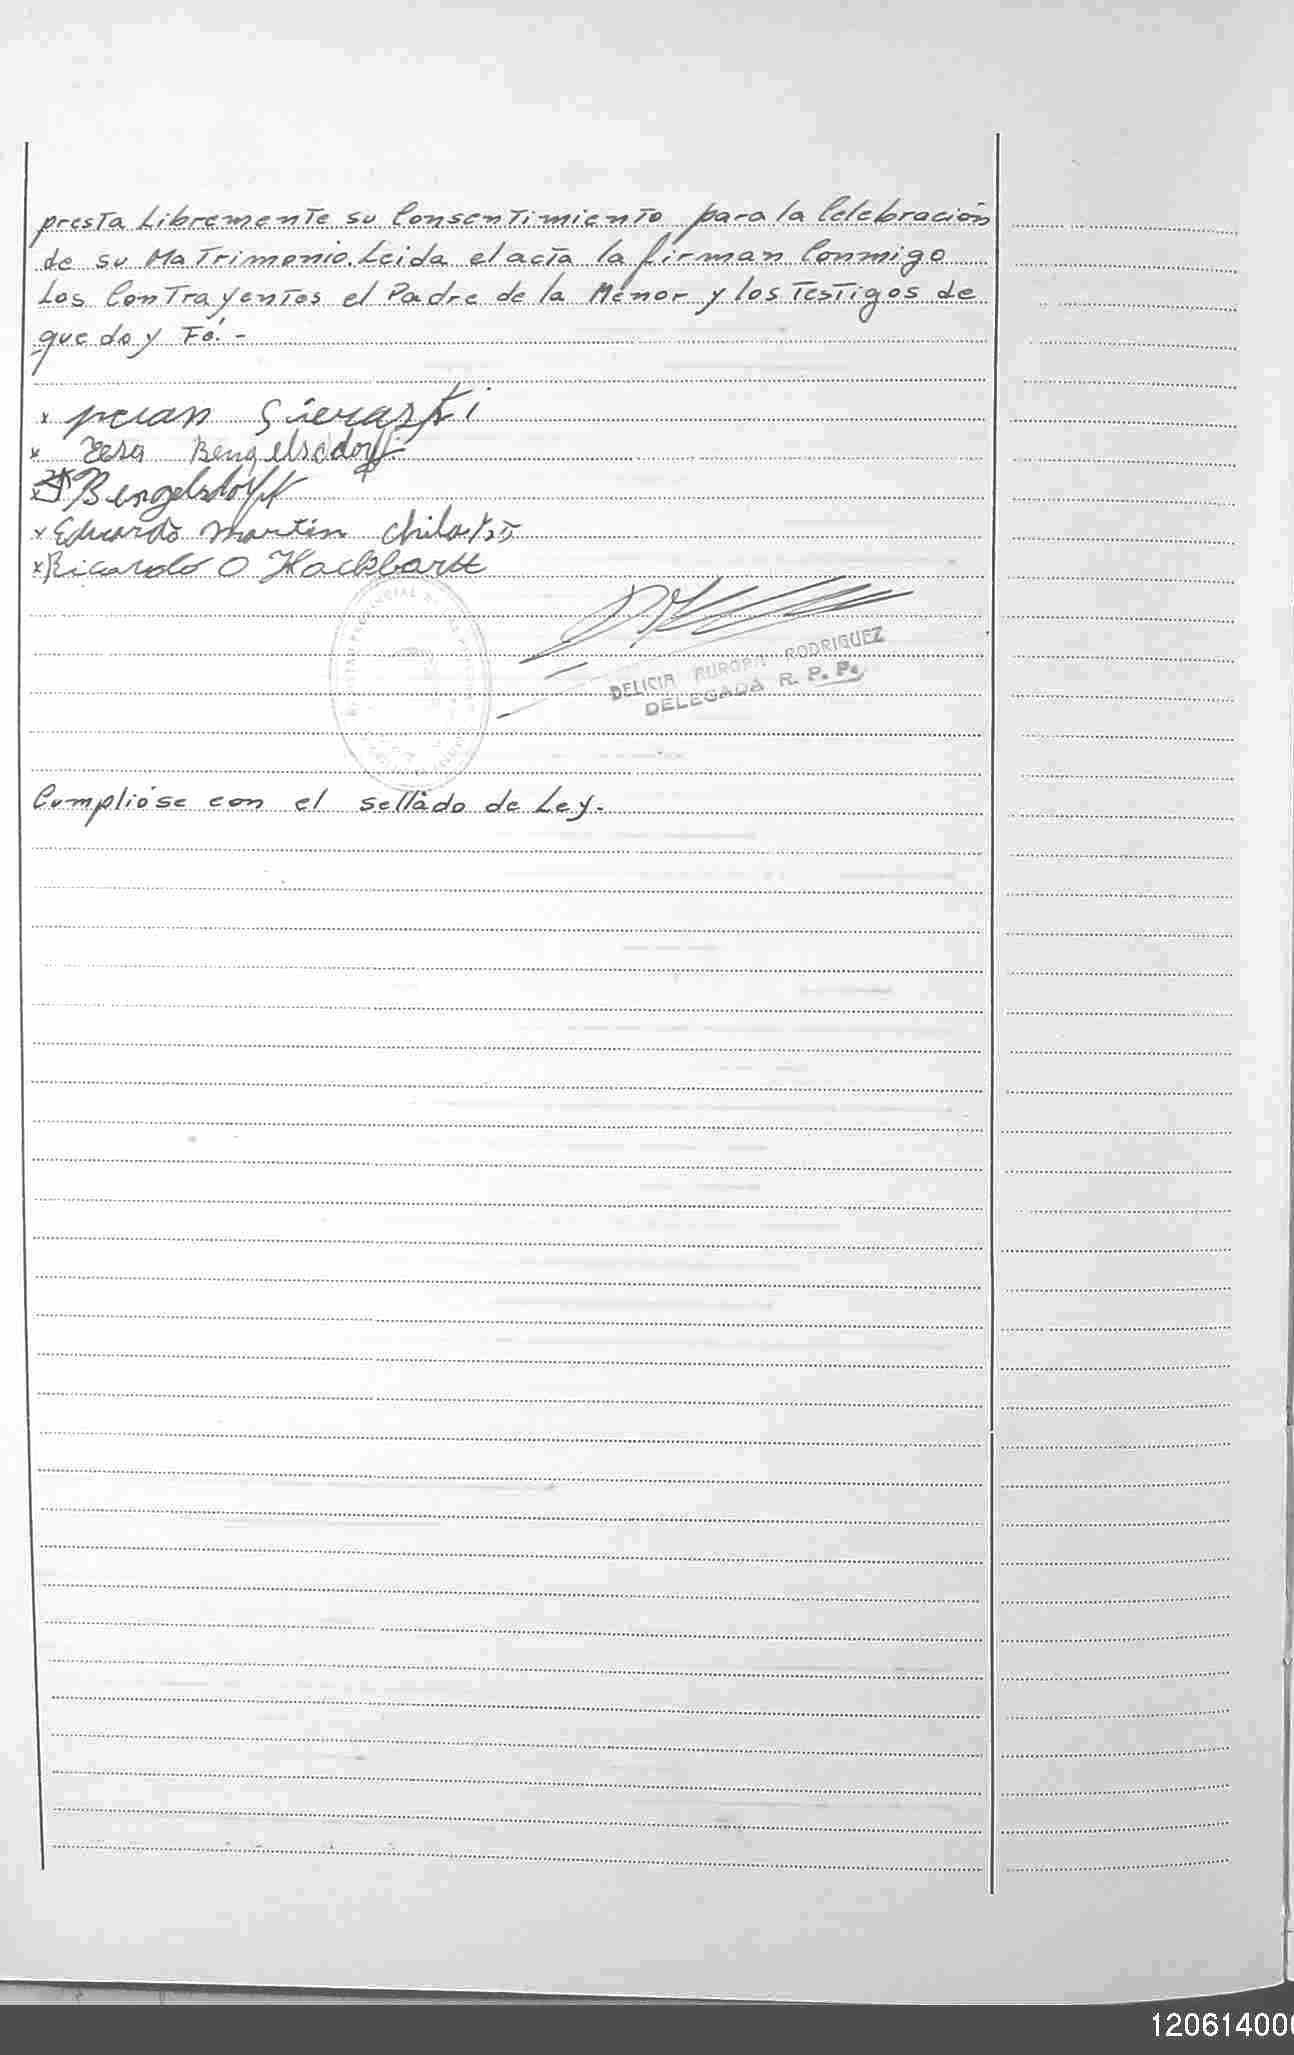 presta Libremente su Consentimiento para la Celebración
de su Matrimonio. Leida el acta la firman Conmigo
Los Contrayentes el Padre de la Menor y los Testigos de
que doy Fé.-
x Juan
x Bengelsdorff
x Bengelsdorff
x Eduardo Martin
x Ricardo O Hackbartt
DELICIA AURORA RODRIGUEZ
DELEGADA R. P. P.
Cumplióse con el sellado de Ley.-
120614000